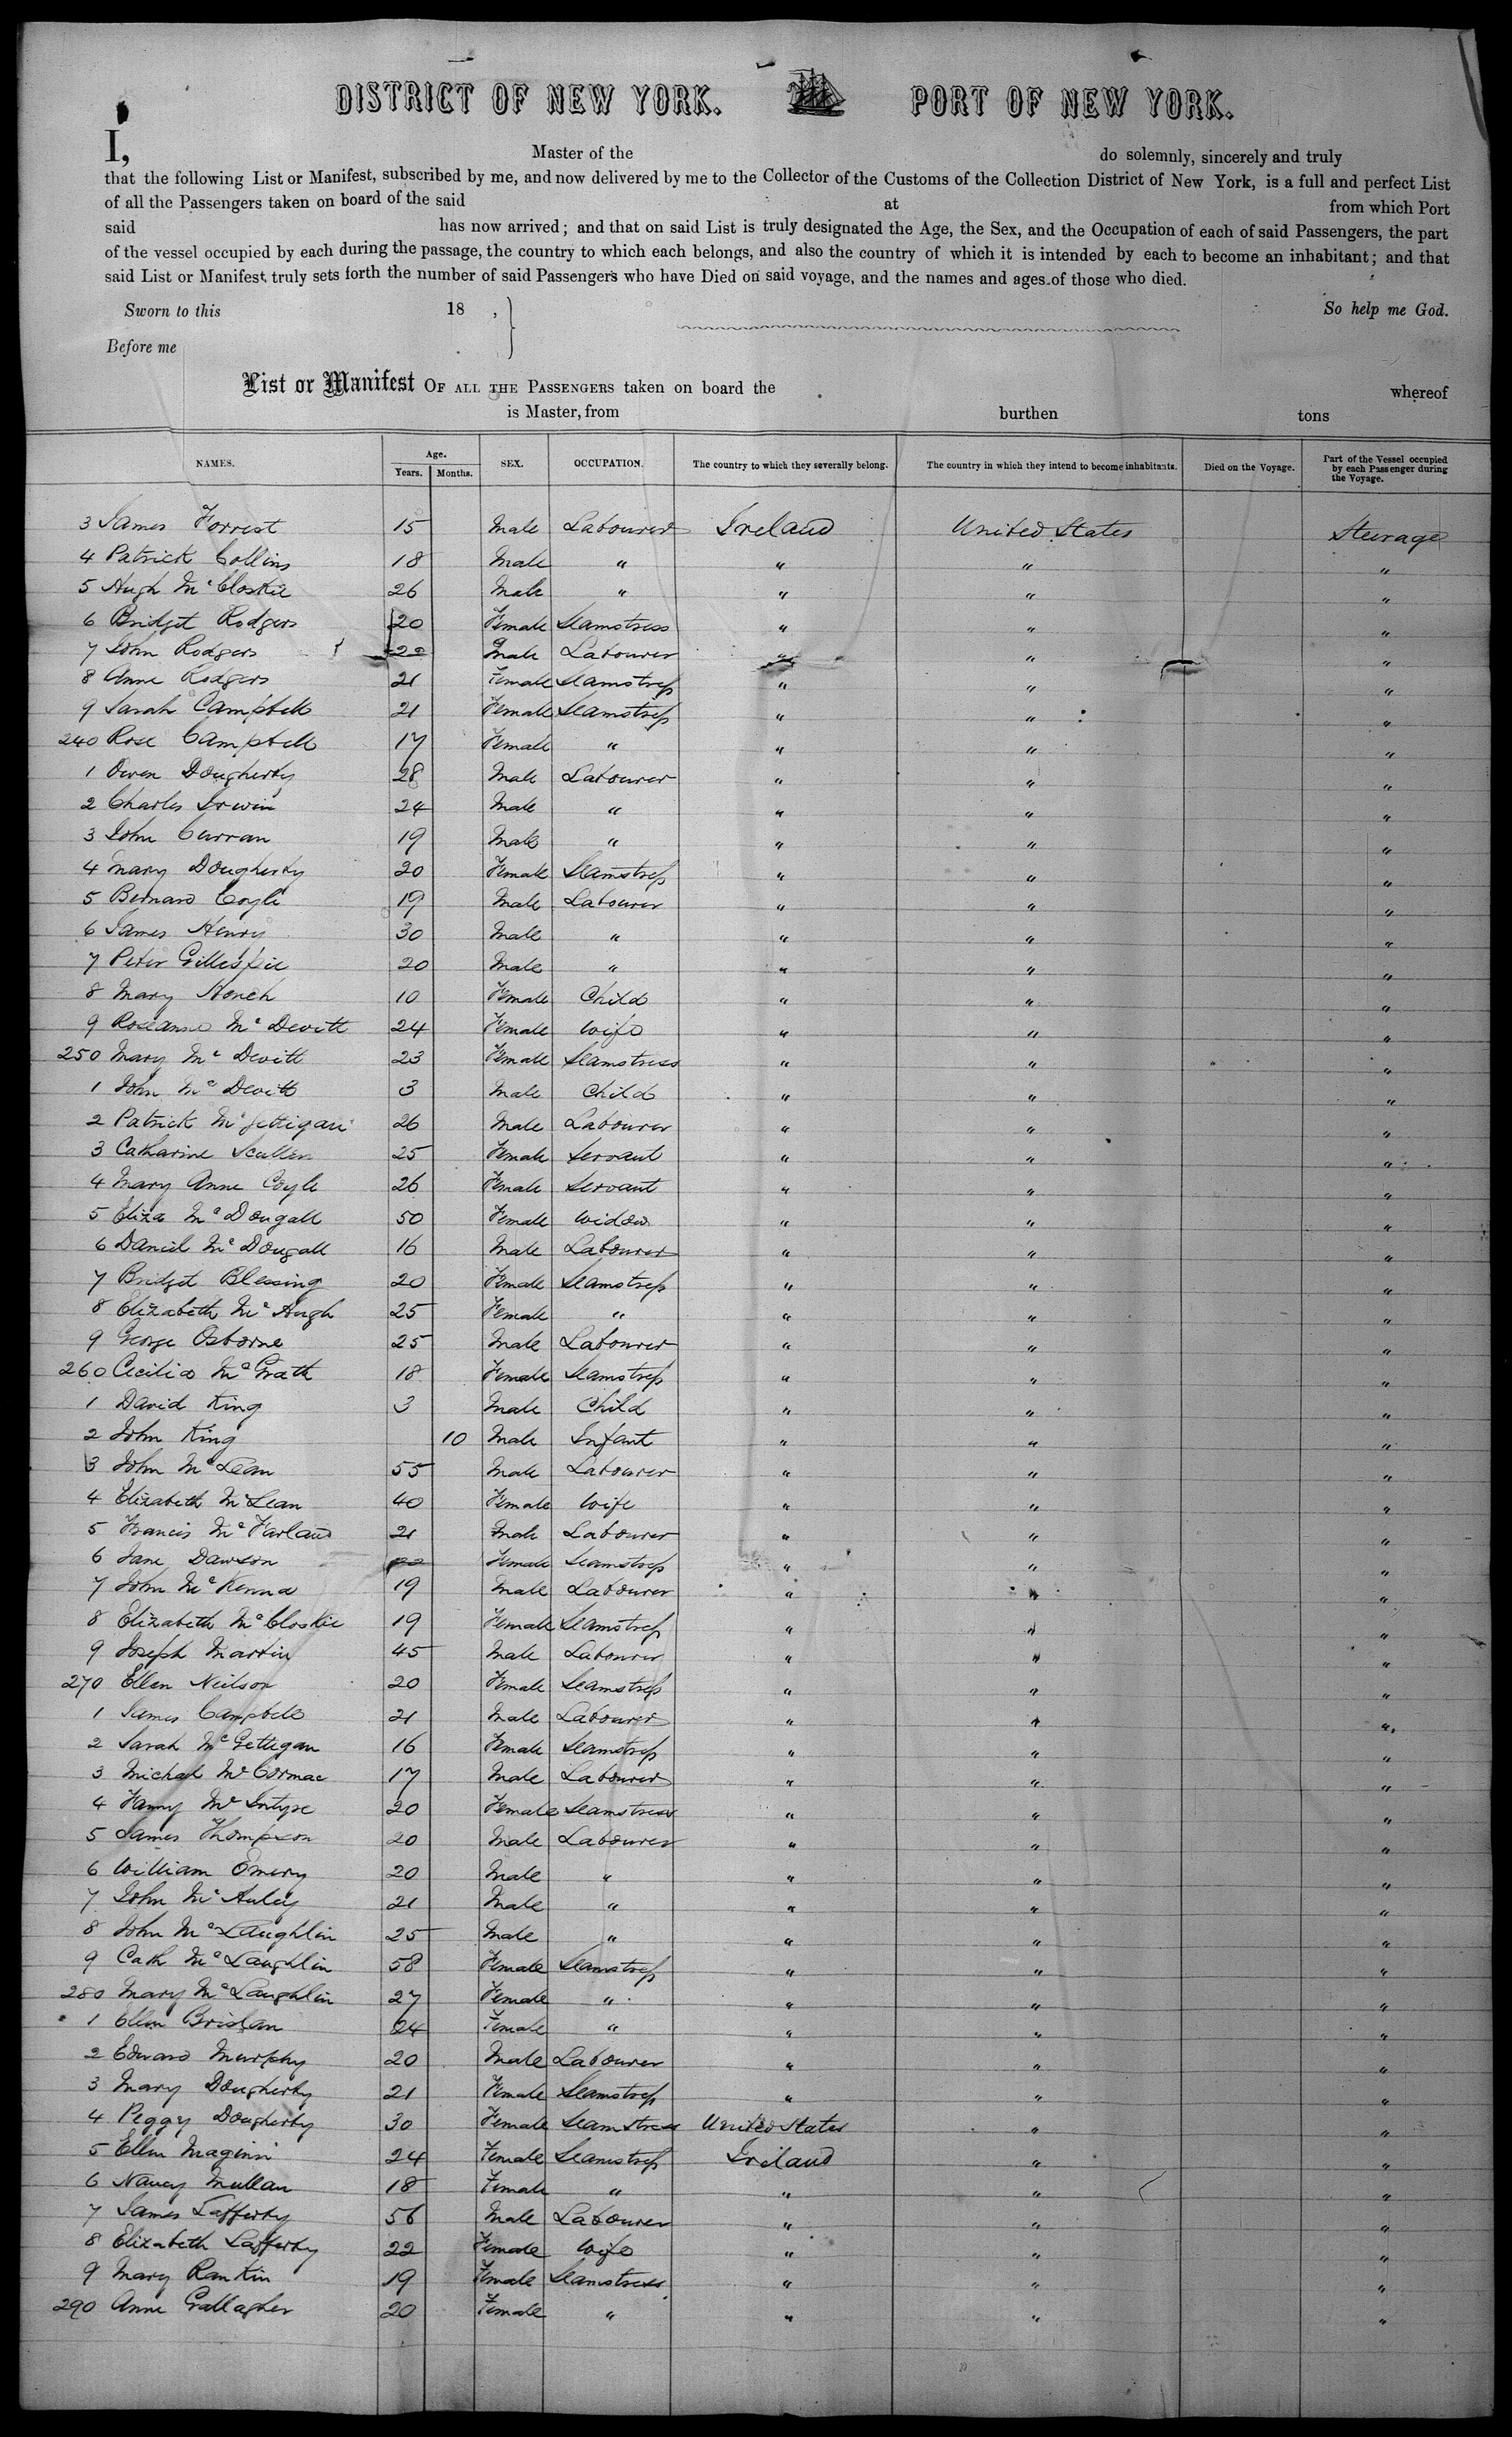 DISTRICT OF NEW YORK. PORT OF NEW YORK.
I, Master of the do solemnly, sincerely and truly
that the following List or Manifest, subscribed by me, and now delivered by me to the Collector of the Customs of the Collection District of New York, is a full and perfect List
of all the Passengers taken on board of the said at from which Port
said has now arrived; and that on said List is truly designated the Age, the Sex, and the Occupation of each of said Passengers, the part
of the vessel occupied by each during the passage, the country to which each belongs, and also the country of which it is intended by each to become an inhabitant; and that
said List or Manifest truly sets forth the number of said Passengers who have Died on said voyage, and the names and ages of those who died.
Sworn to this 18 , So help me God.
Before me
List or Manifest OF ALL THE PASSENGERS taken on board the whereof
is Master, from burthen tons
NAMES. Age. Years. Months. SEX. OCCUPATION. The country to which they severally belong. The country in which they intend to become inhabitants. Died on the Voyage. Part of the Vessel occupied by each Passenger during the Voyage.
3 James Forrest 15 Male Labourer Ireland United States Steerage
4 Patrick Collins 18 Male " " " "
5 Hugh McCloskie 26 Male " " " "
6 Bridget Rodgers 20 Female Seamstress " " "
7 John Rodgers 22 Male Labourer " " "
8 Anne Rodgers 21 Female Seamstress " " "
9 Sarah Campbell 21 Female Seamstress " " "
240 Rose Campbell 17 Female " " " "
1 Owen Dougherty 28 Male Labourer " " "
2 Charles Irwin 24 Male " " " "
3 John Curran 19 Male " " " "
4 Mary Dougherty 20 Female Seamstress " " "
5 Bernard Coyle 19 Male Labourer " " "
6 James Henry 30 Male " " " "
7 Peter Gillespie 20 Male " " " "
8 Mary 10 Female Child " " "
9 Roseanna McDevitt 24 Female Wife " " "
250 Mary McDevitt 23 Female Seamstress " " "
1 John McDevitt 3 Male Child " " "
2 Patrick McGettigan 26 Male Labourer " " "
3 Catharine Scullen 25 Female Servant " " "
4 Mary Anne Coyle 26 Female Servant " " "
5 Eliza McDougall 50 Female Widow " " "
6 Daniel McDougall 16 Male Labourer " " "
7 Bridget Blessing 20 Female Seamstress " " "
8 Elizabeth McHugh 25 Female " " " "
9 George Osborne 25 Male Labourer " " "
260 Cecilia McGrath 18 Female Seamstress " " "
1 David King 3 Male Child " " "
2 John King 10 Male Infant " " "
3 John McLean 55 Male Labourer " " "
4 Elizabeth McLean 40 Female Wife " " "
5 Francis McFarland 21 Male Labourer " " "
6 Jane Dawson 22 Female Seamstress " " "
7 John McKenna 19 Male Labourer " " "
8 Elizabeth McCloskie 19 Female Seamstress " " "
9 Joseph Martin 45 Male Labourer " " "
270 Ellen Neilson 20 Female Seamstress " " "
1 James Campbell 21 Male Labourer " " "
2 Sarah McGettigan 16 Female Seamstress " " "
3 Michael McCormac 17 Male Labourer " " "
4 Fanny McIntyre 20 Female Seamstress " " "
5 James Thompson 20 Male Labourer " " "
6 William Emery 20 Male " " " "
7 John McAuley 21 Male " " " "
8 John McLaughlin 25 Male " " " "
9 Cath McLaughlin 58 Female Seamstress " " "
280 Mary McLaughlin 27 Female " " " "
1 Ellen Brislan 24 Female " " " "
2 Edward Murphy 20 Male Labourer " " "
3 Mary Dougherty 21 Female Seamstress " " "
4 Peggy Dougherty 30 Female Seamstress United States " "
5 Ellen Maginn 24 Female Seamstress Ireland " "
6 Nancy Mullan 18 Female " " " "
7 James Lafferty 56 Male Labourer " " "
8 Elizabeth Lafferty 22 Female Wife " " "
9 Mary Rankin 19 Female Seamstress " " "
290 Anne Gallagher 20 Female " " " "